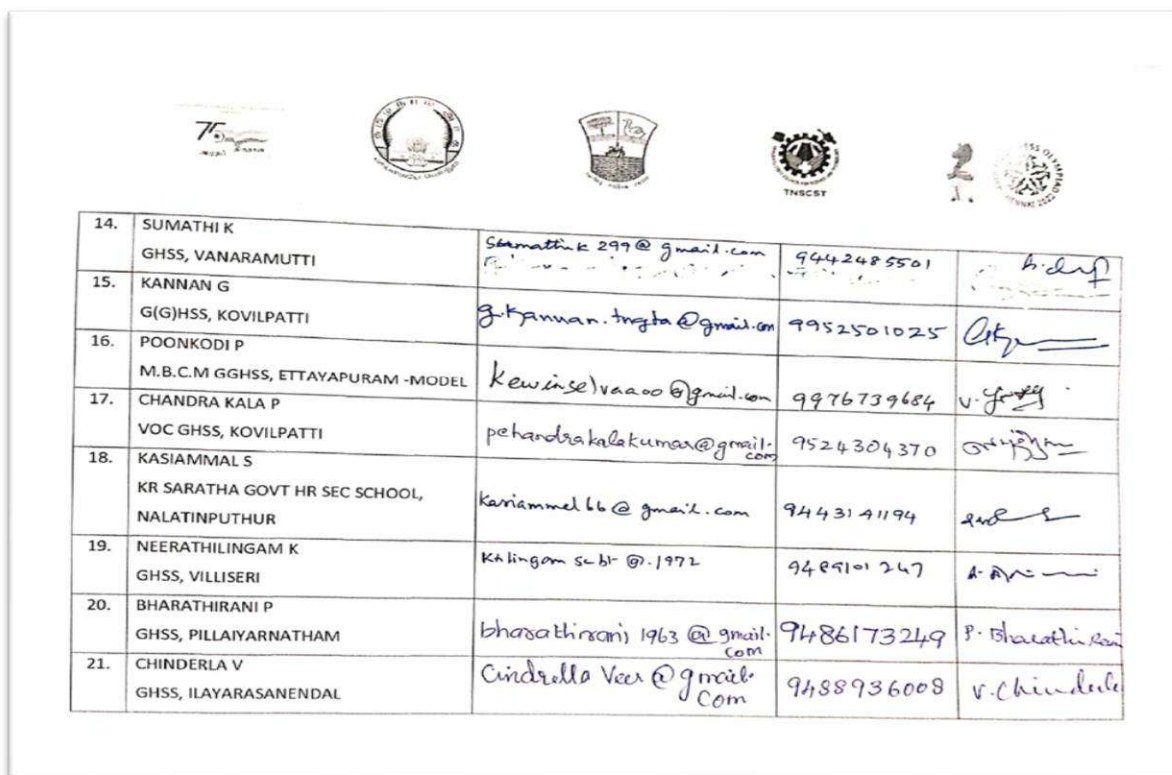 75
TNSCST
14. SUMATHI K
GHSS, VANARAMUTTI
299@gmail.com
9442485501
15. KANNAN G
G(G)HSS, KOVILPATTI
g.kannan.tngta@gmail.com
9952501025
16. POONKODI P
M.B.C.M GGHSS, ETTAYAPURAM -MODEL
9976739684
17. CHANDRA KALA P
VOC GHSS, KOVILPATTI
pchandrakalakumar@gmail.
com
9524304370
18. KASIAMMAL S
KR SARATHA GOVT HR SEC SCHOOL,
NALATINPUTHUR
Kasiammal66@gmail.com
9443141194
19. NEERATHILINGAM K
GHSS, VILLISERI
9489101247
20. BHARATHIRANI P
GHSS, PILLAIYARNATHAM
bharathirani1963@gmail.
com
9486173249
P. Bharathirani
21. CHINDERLA V
GHSS, ILAYARASANENDAL
Cindrella Veer@gmail.
Com
9488936008
V. Chinderla